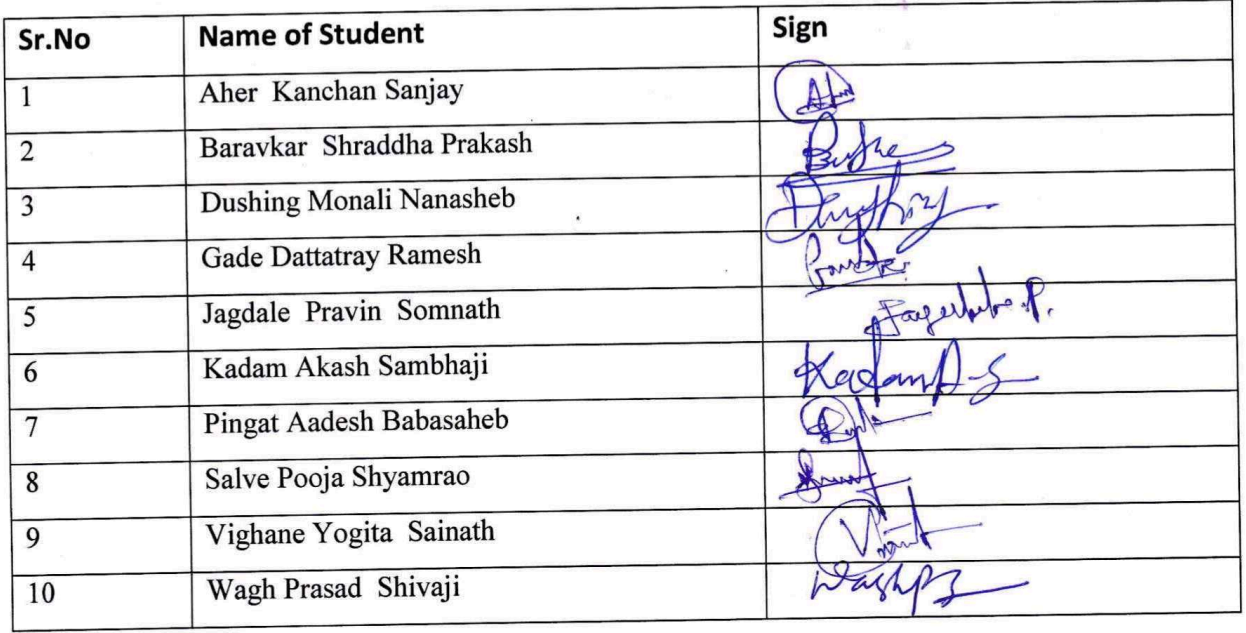 Sr.No Name of Student Sign
1 Aher Kanchan Sanjay
2 Baravkar Shraddha Prakash
3 Dushing Monali Nanasheb
4 Gade Dattatray Ramesh
5 Jagdale Pravin Somnath
6 Kadam Akash Sambhaji Kadam A-S
7 Pingat Aadesh Babasaheb
8 Salve Pooja Shyamrao
9 Vighane Yogita Sainath
10 Wagh Prasad Shivaji